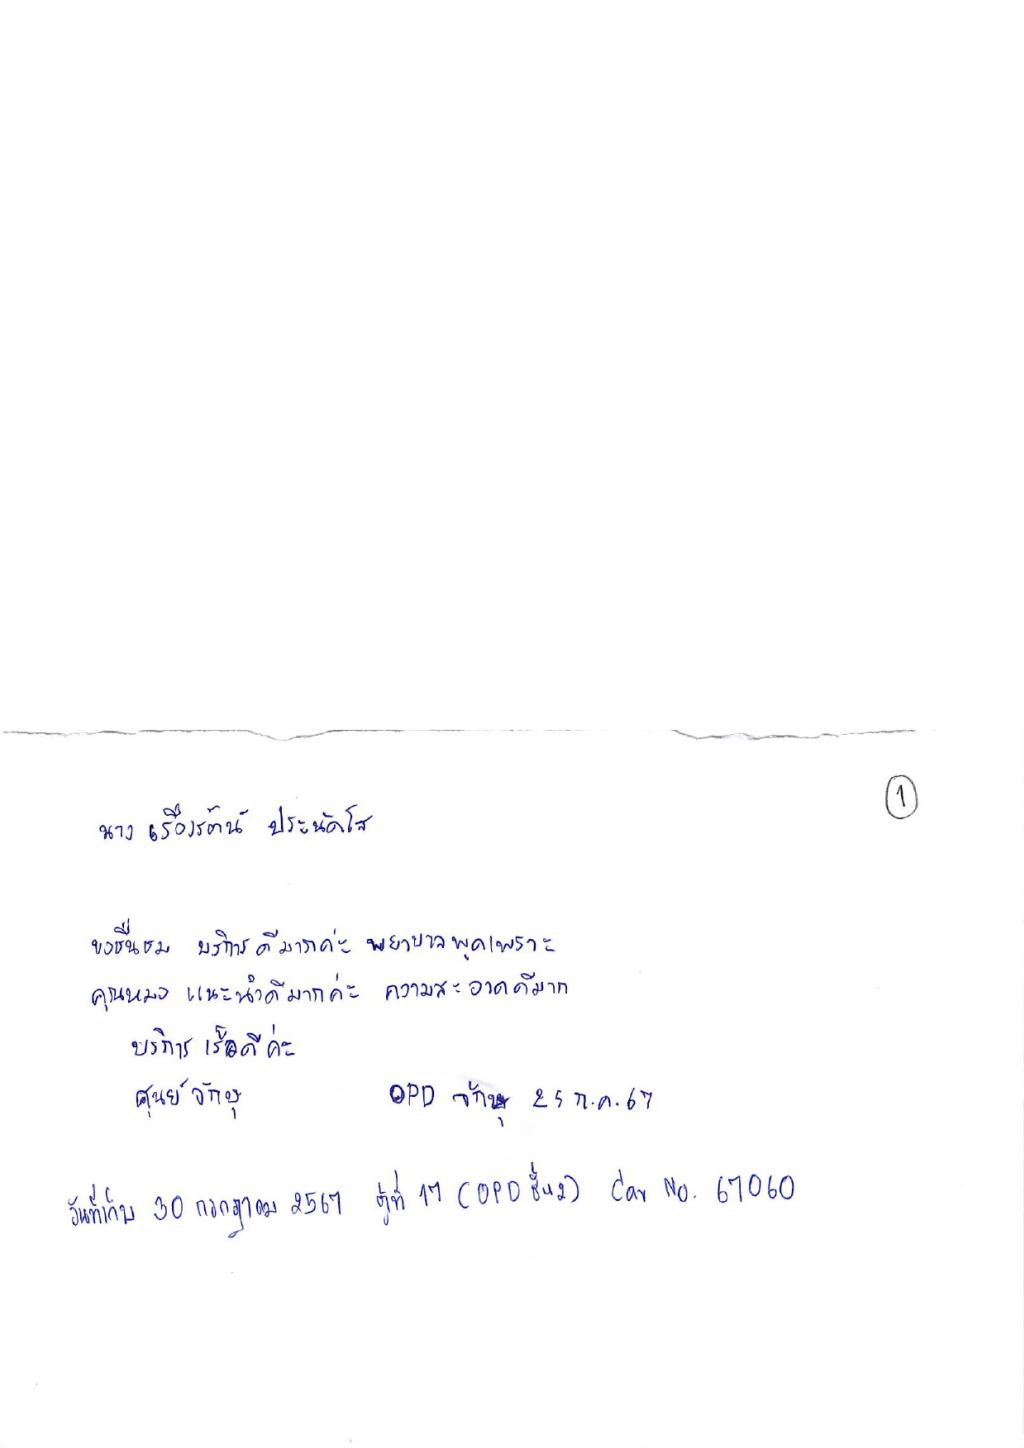 1
นาง เรืองรัตน์ ประนัดโส
ขอชื่นชม บริการดีมากค่ะ พยาบาลพูดเพราะ
คุณหมอ แนะนำดีมากค่ะ ความสะอาดดีมาก
บริการ เร็วดีค่ะ
ศูนย์จักษุ OPD จักษุ 25 ก.ค. 67
วันที่เก็บ 30 กรกฎาคม 2567 ตู้ที่ 17 (OPD ชั้น2) Car No. 67060